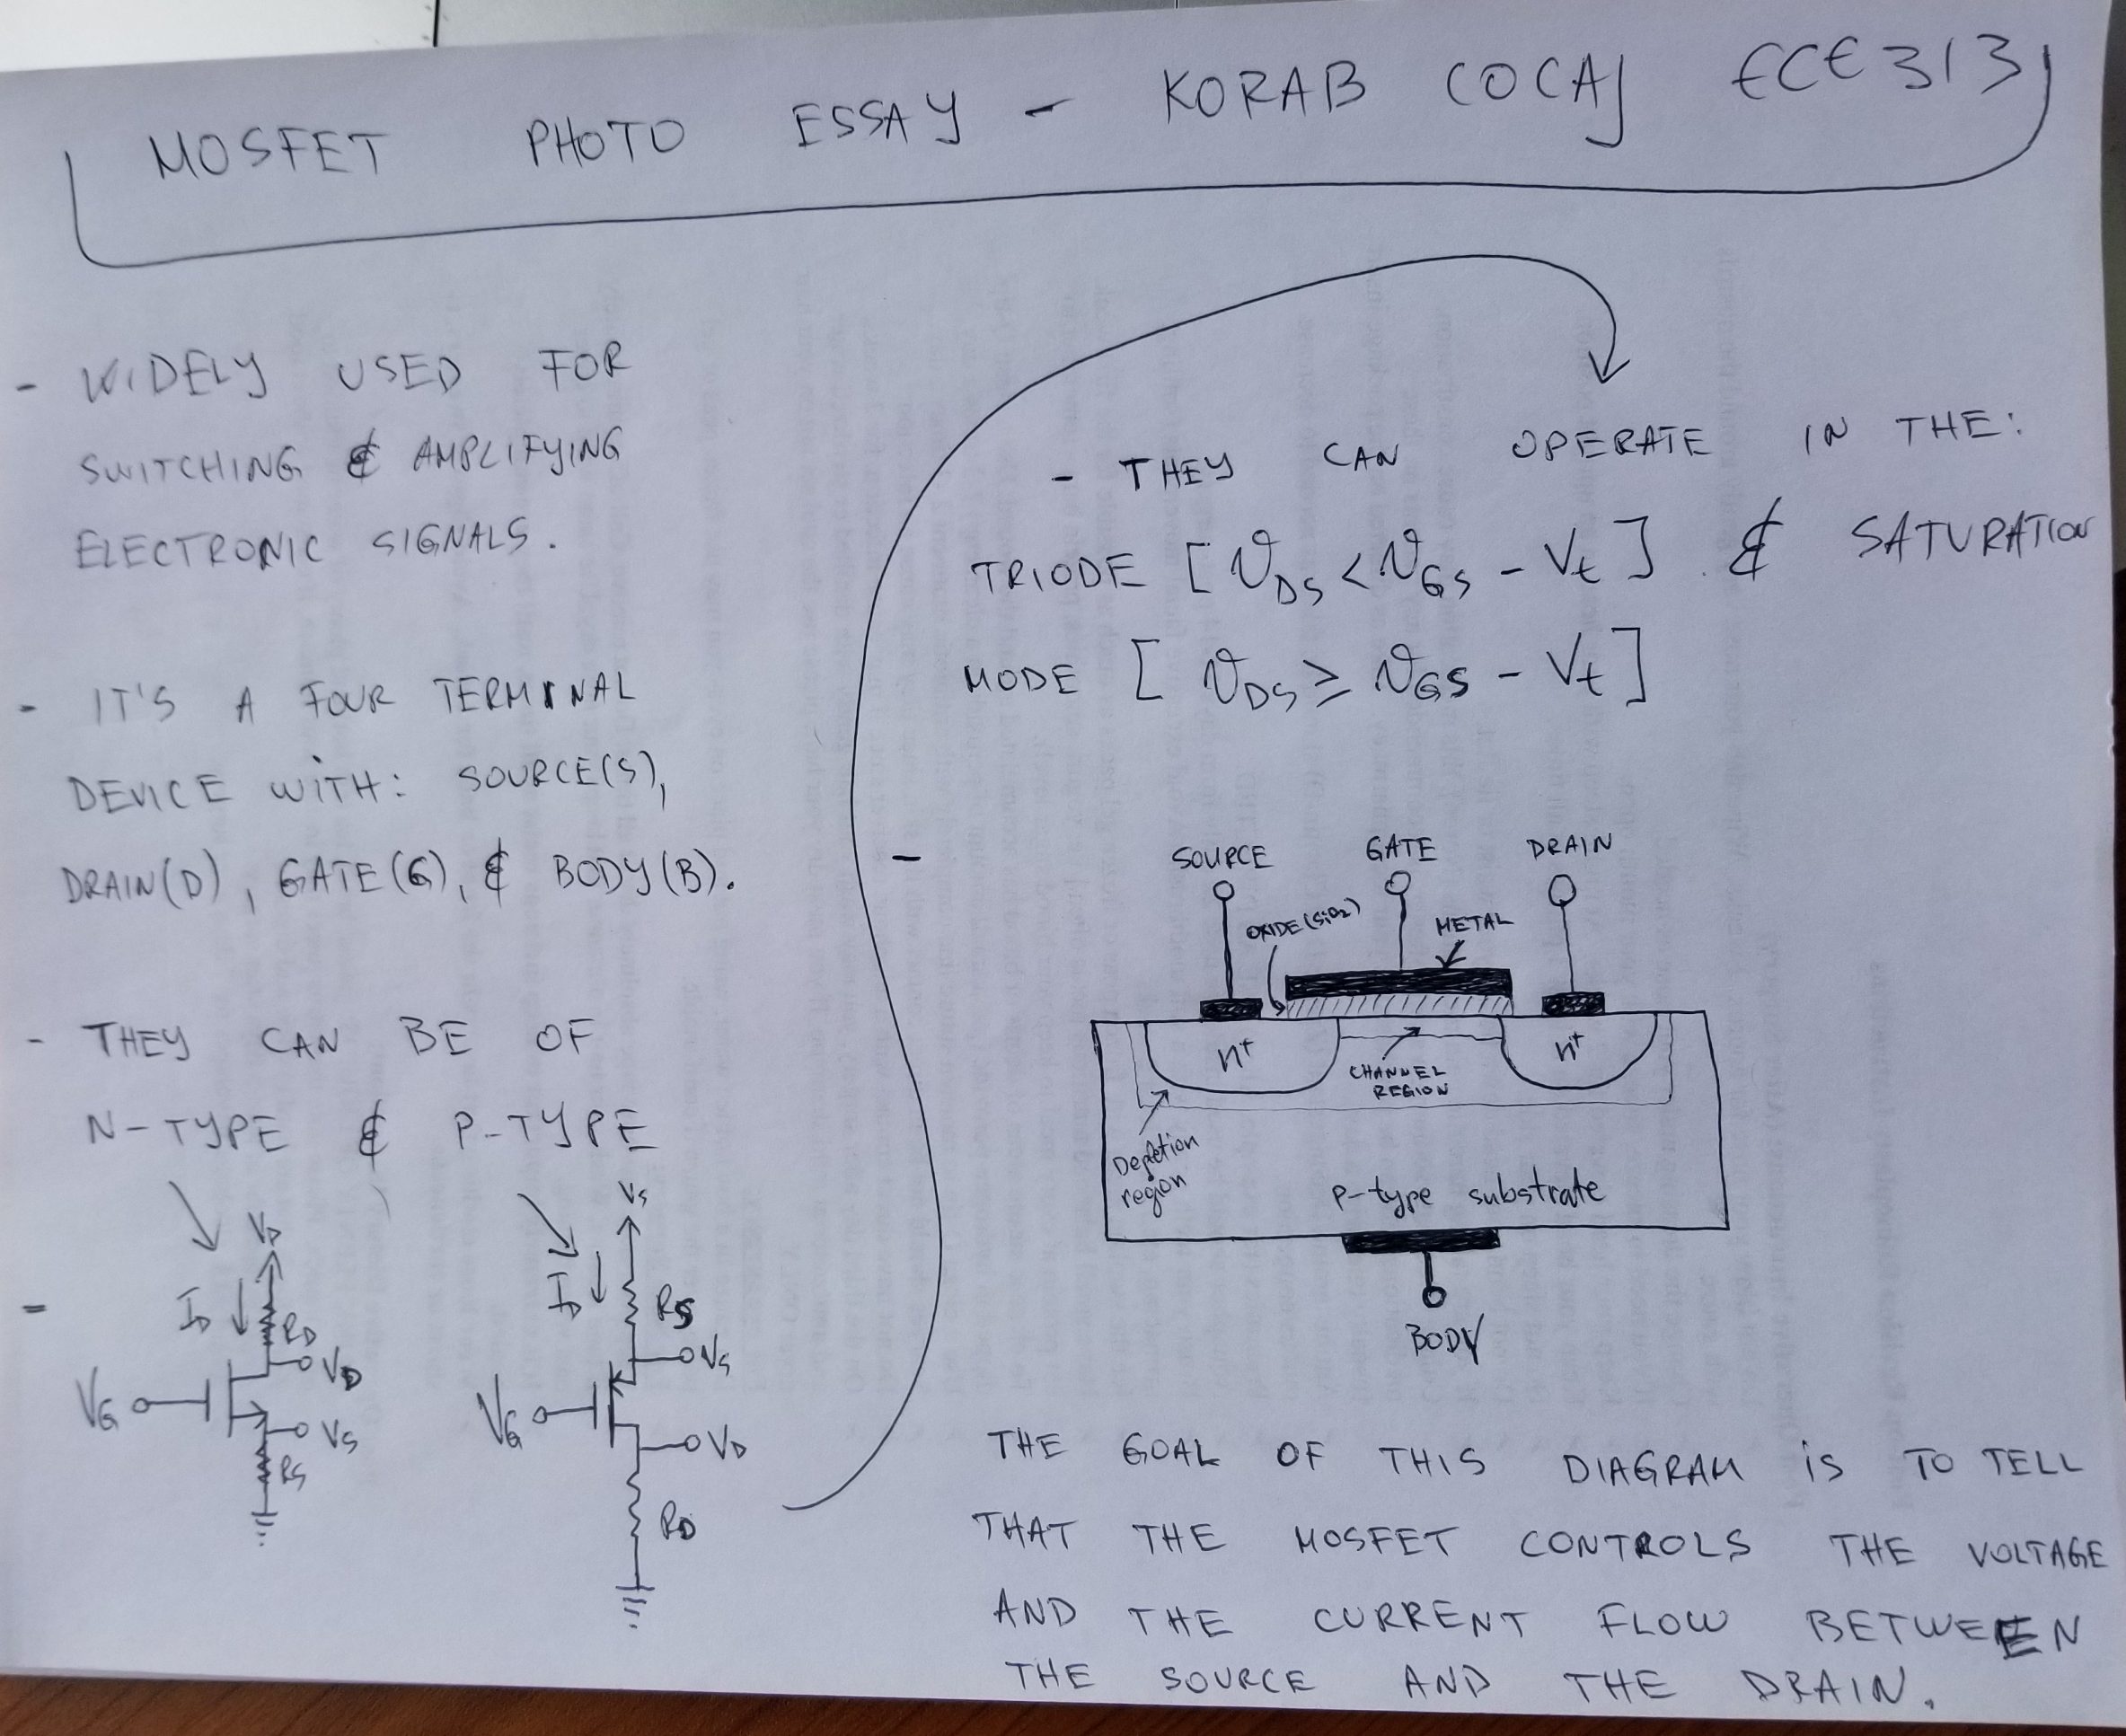 MOSFET PHOTO ESSAY - KORAB COCAJ ECE 313
- WIDELY USED FOR
SWITCHING & AMPLIFYING
ELECTRONIC SIGNALS.
- IT'S A FOUR TERMINAL
DEVICE WITH: SOURCE(S),
DRAIN(D), GATE(G), & BODY(B).
- THEY CAN BE OF
N-TYPE & P-TYPE
-
VD
ID
RD
VD
VG
VS
RS
VS
ID
RS
VS
VG
VD
RD
- THEY CAN OPERATE IN THE:
TRIODE [VDS < VGS - Vt] & SATURATION
MODE [VDS ≥ VGS - Vt]
-
SOURCE GATE DRAIN
OXIDE (SiO2) METAL
n+ n+
CHANNEL
REGION
Depletion
region
p-type substrate
BODY
THE GOAL OF THIS DIAGRAM iS TO TELL
THAT THE MOSFET CONTROLS THE VOLTAGE
AND THE CURRENT FLOW BETWEEN
THE SOURCE AND THE DRAIN.